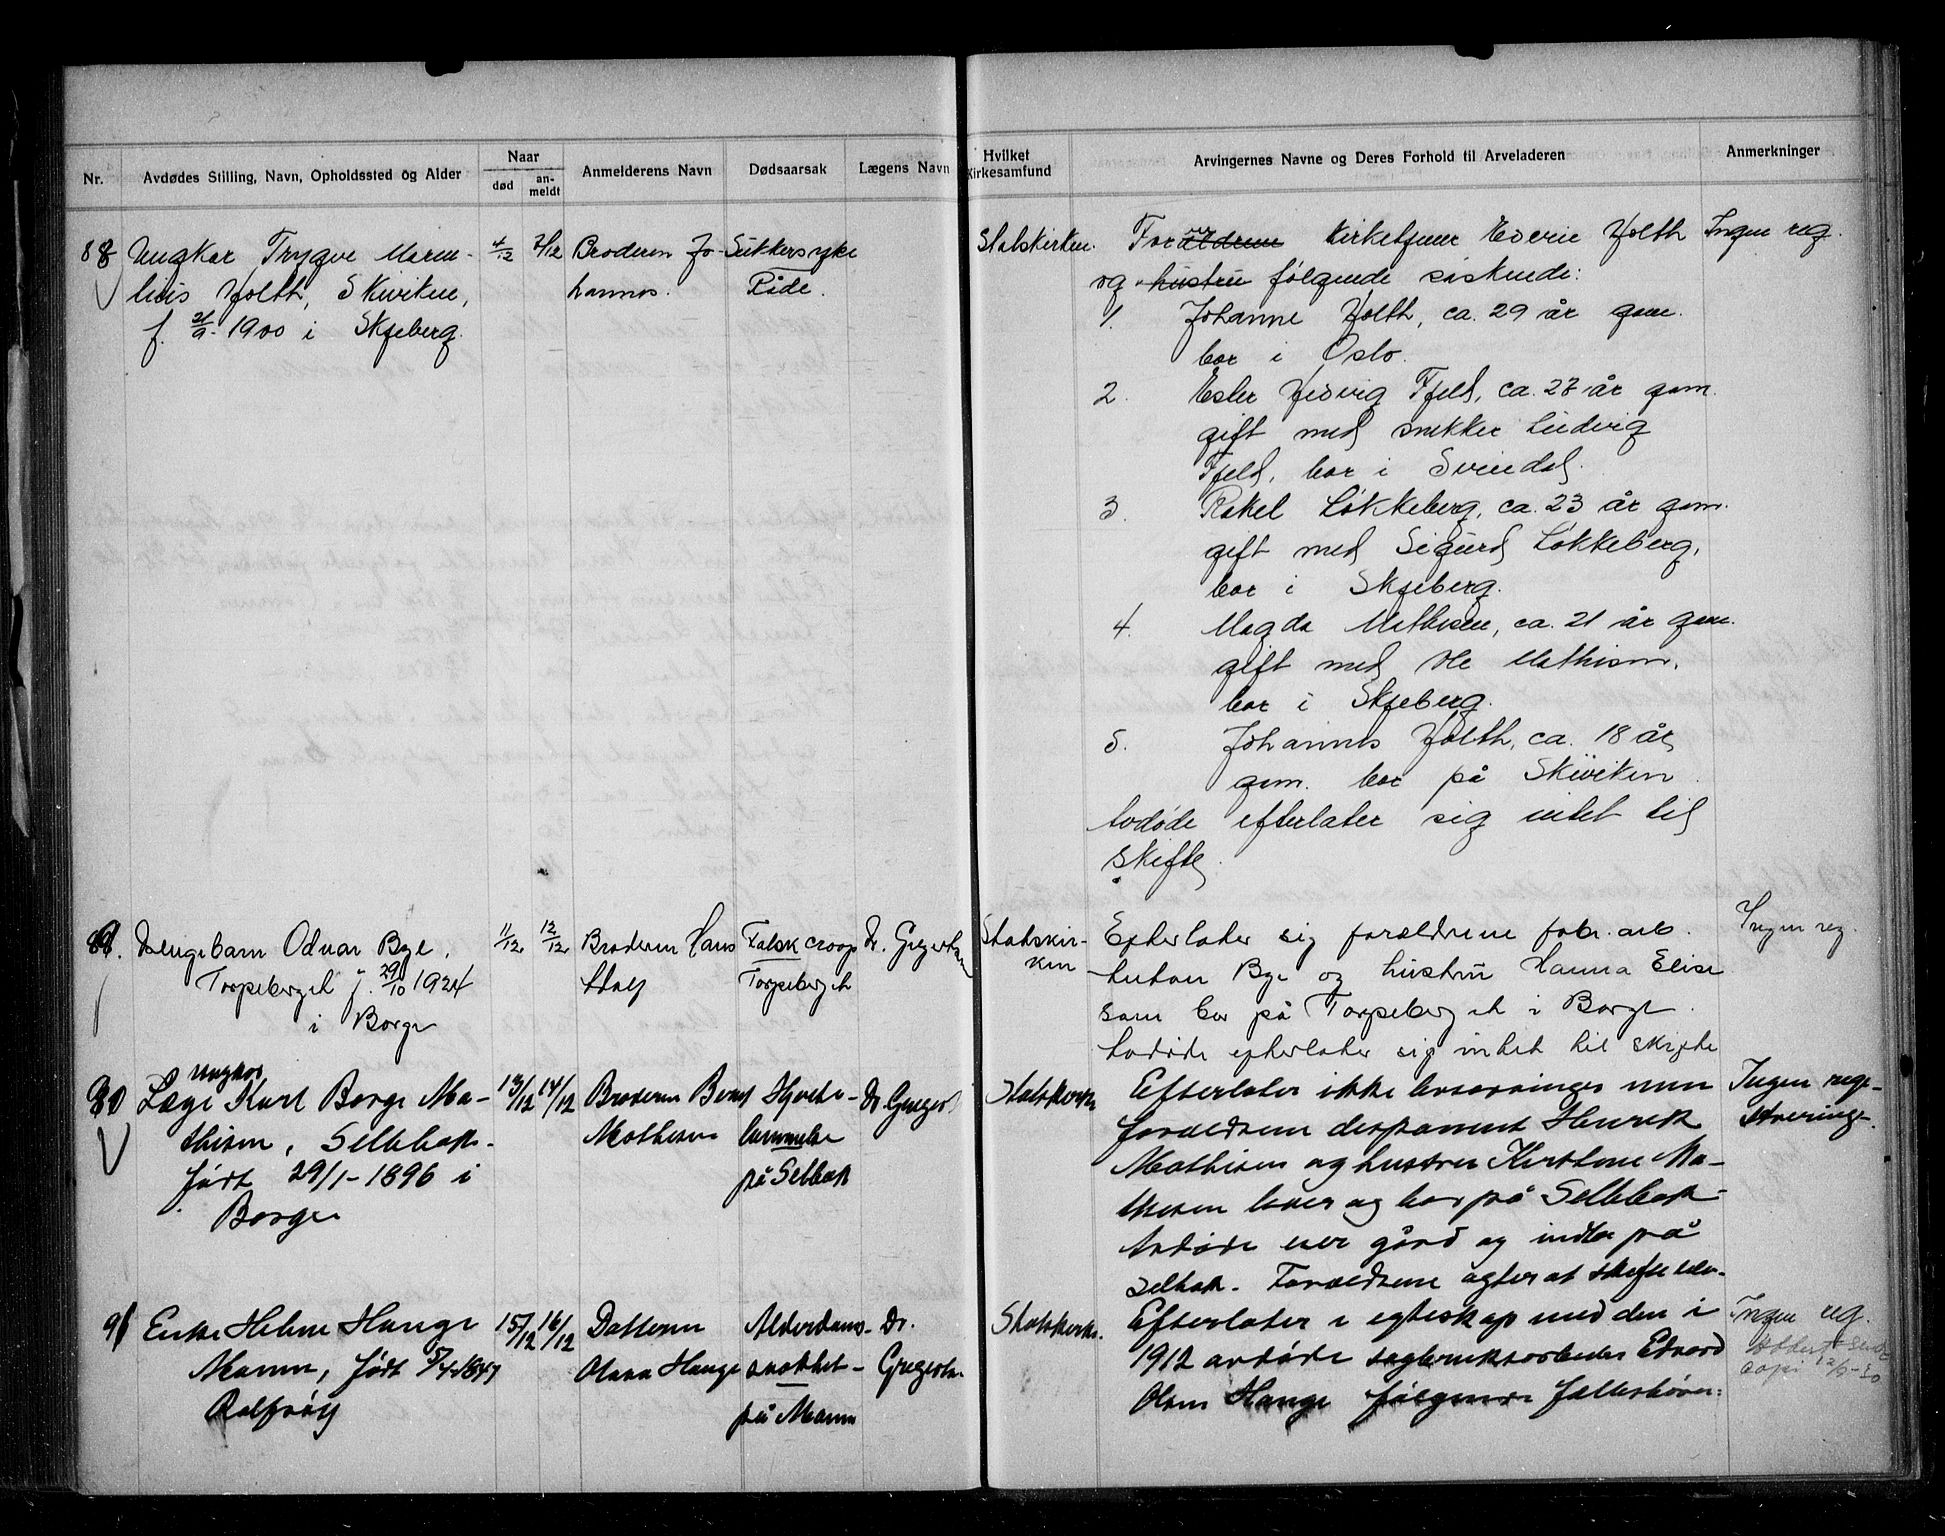 Nr.
Avdødes Stilling, Navn, Opholdssted og Alder
Naar
død
an-
meldt
Anmelderens Navn
Dødsaarsak
Lægens Navn
Hvilket
Kirkesamfund
Arvingernes Navne og Deres Forhold til Arveladeren
Anmerkninger
88
Ungkar Trygve Mare-
lius Holth, Skiviken,
f. 21/9-1900 i Skjeberg.
4/12
7/12
Broderen Jo-
hannes.
Sukkersyke
Råde.
Statskirken.
Far kirketjener Edvin Holth
og hustru følgende søskende:
1. Johanne Holth, ca. 29 år gam.
bor i Oslo.
2. Ester Hedvig Fjeld, ca. 27 år gam.
gift med snekker Ludvig
Fjeld, bor i Svindal.
3. Rakel Løkkeberg, ca. 23 år gam.
gift med Sigurd Løkkeberg,
bor i Skjeberg.
4. Magda Mathisen, ca. 21 år gam.
gift med Ole Mathisen,
bor i Skjeberg.
5. Johannes Holth, ca. 18 år
gam. bor på Skiviken
Avdøde efterlater sig intet til
skifte.
Ingen reg.
89.
Drengebarn Odvar Bye,
Torpeberget f. 29/10 1924
i Borge
11/12
12/12
Broderen Hans
Adolf
Falsk croop
Torpeberget
Dr. Gregertsen
Statskir-
ken
Efterlater sig forældrene fabr. arb.
Anton Bye og hustru Hanna Elise
som bor på Torpeberget i Borge.
Avdøde efterlater sig intet til skifte
Ingen reg.
90
Ungkar
Læge Karl Borge Ma-
thisen, Selbak.
født 29/1-1896 i
Borge
13/12
14/12
Broderen Bernt
Mathisen
Hjerte-
lammelse
på Selbak
Dr. Gregers.
Statskirke
Efterlater ikke livsarvinger men
forældrene disponent Henrik
Mathisen og hustru Kirstine Ma-
thisen lever og bor på Selbak-
Avdøde eier gård og indbo på
Selbak. Forældrene agter at skifte
Ingen regi-
strering.
91
Enke Helene Hauge
Moum, født 5/4-1847
Rolfsøy
15/12
16/12
Datteren
Olava Hauge
Alderdoms-
svakhet-
på Moum
Dr.
Gregertsen
Statskirke.
Efterlater i egteskap med den i
1912 avdøde sagbruksarbeider Edvard
Olsen Hauge følgende fællesbørn:
Ingen reg.
copi 12/5-50